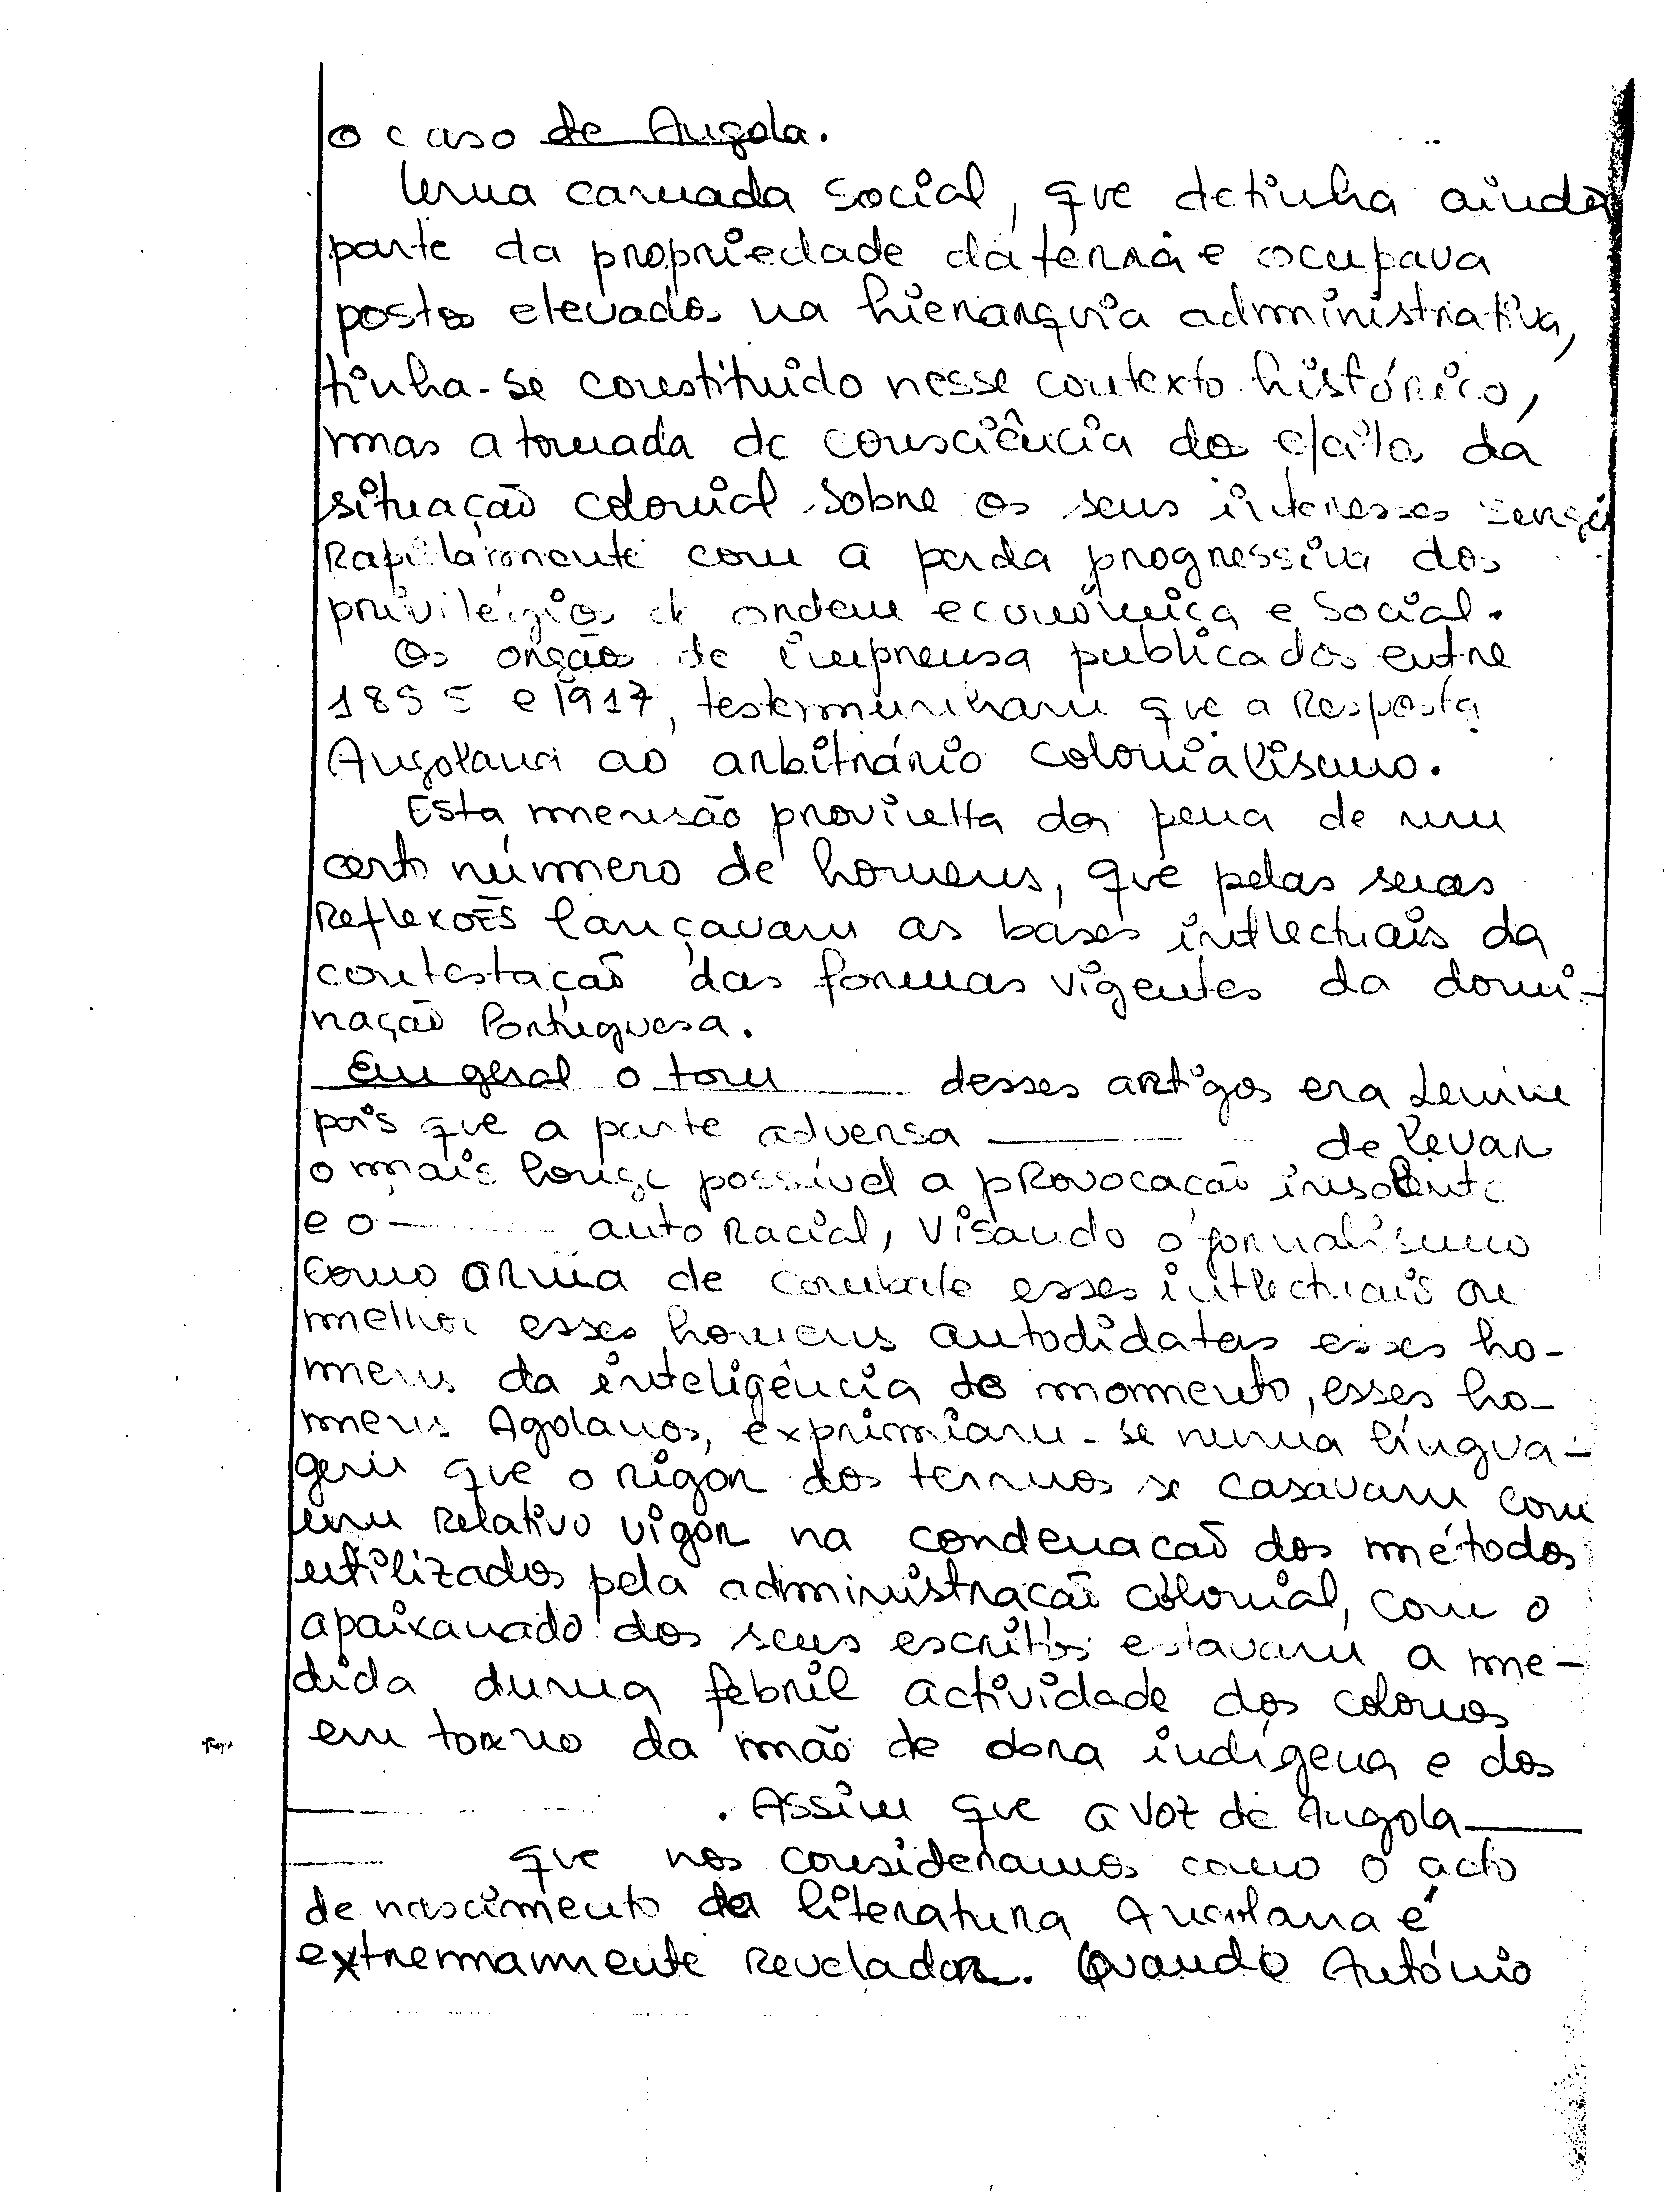 o caso de Angola.
Uma camada social, que detinha ainda
parte da propriedade da terra e ocupava
postos elevados na hierarquia administrativa,
tinha-se constituido nesse contexto histórico,
mas a tomada de consciência do da
situação colonial sobre os seus interesses
Rapidamente com a perda progressiva dos
privilégios de ordem económica e social.
Os orgãos de imprensa publicados entre
e 1917, testemunham que a Resposta
Angolana ao arbitrário colonialismo.
Esta mensão da pena de um
certo número de homens, que pelas suas
Reflexões lançavam as bases intlectuais da
contestação das formas vigentes da domi-
nação Portuguesa.
Em geral o tom desses artigos era
pois que a parte adversa de levar
o mais longe possível a provocação insolente
e o auto Racial, visando o jornalismo
como arma de combate esses intlectuais ou
melhor esses homens autodidatas esses ho-
mens da inteligência do momento, esses ho-
mens Agolanos, exprimiam-se numa língua-
gem que o rigor dos termos se casavam com
um Relativo vigor na condenacaõ dos métodos
utilizados pela administracaõ colonial, com o
apaixanado dos seus escritos estavam a me-
dida duma febril actividade dos colonos
em torno da mão de obra indígena e dos
. Assim que a voz de Angola
que nos consideramos como o acto
de nascimento da literatura Angolana é
extremamente Revelador. Quando António